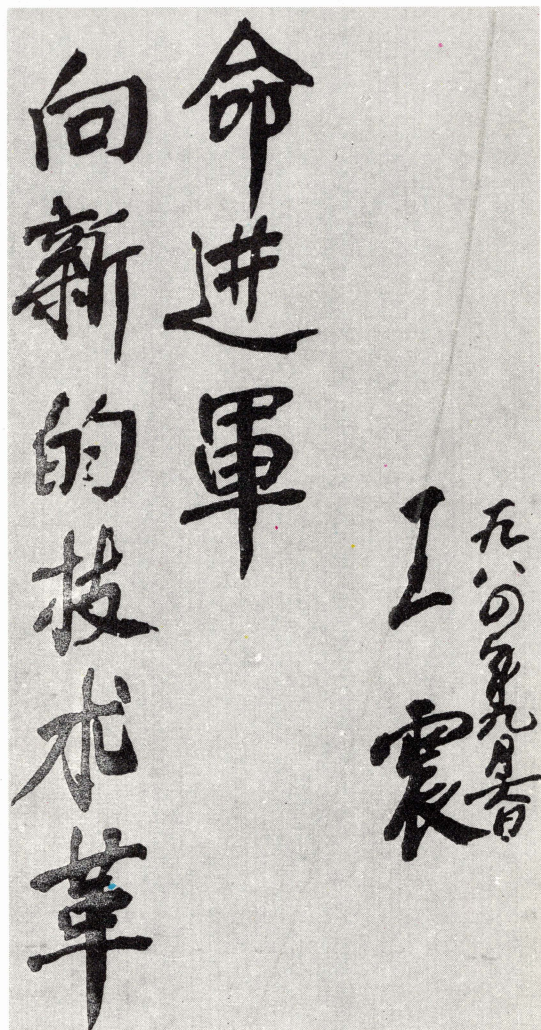 向新的技术革
命进軍
王震
一九八四年九月日